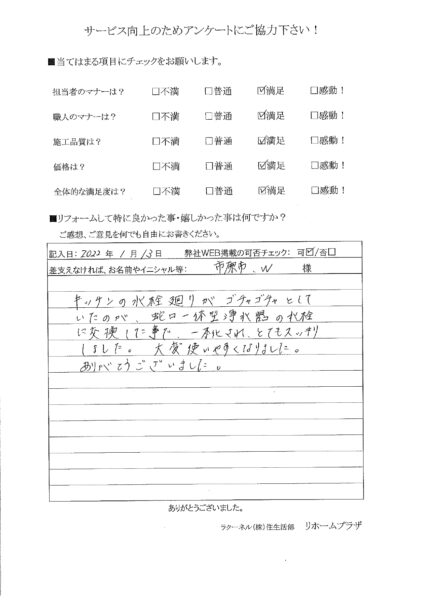 サービス向上のためアンケートにご協力下さい！
■当てはまる項目にチェックをお願いします。
担当者のマナーは？ □不満 □普通 ☑満足 □感動！
職人のマナーは？ □不満 □普通 ☑満足 □感動！
施工品質は？ □不満 □普通 ☑満足 □感動！
価格は？ □不満 □普通 ☑満足 □感動！
全体的な満足度は？ □不満 □普通 ☑満足 □感動！
■リフォームして特に良かった事・嬉しかった事は何ですか？
ご感想、ご意見を何でも自由にお書きください。
記入日：2022 年 1 月 13 日 弊社WEB掲載の可否チェック： 可☑/否□
差支えなければ、お名前やイニシャル等： 市原市、W 様
キッチンの水栓廻りがゴチャゴチャとして
いたのが、蛇口一体型浄水器の水栓
に交換した事で、一本化され、とてもスッキリ
しました。大変使いやすくなりました。
ありがとうございました。
ありがとうございました。
ラクーネル（株）住生活部 リホームプラザ